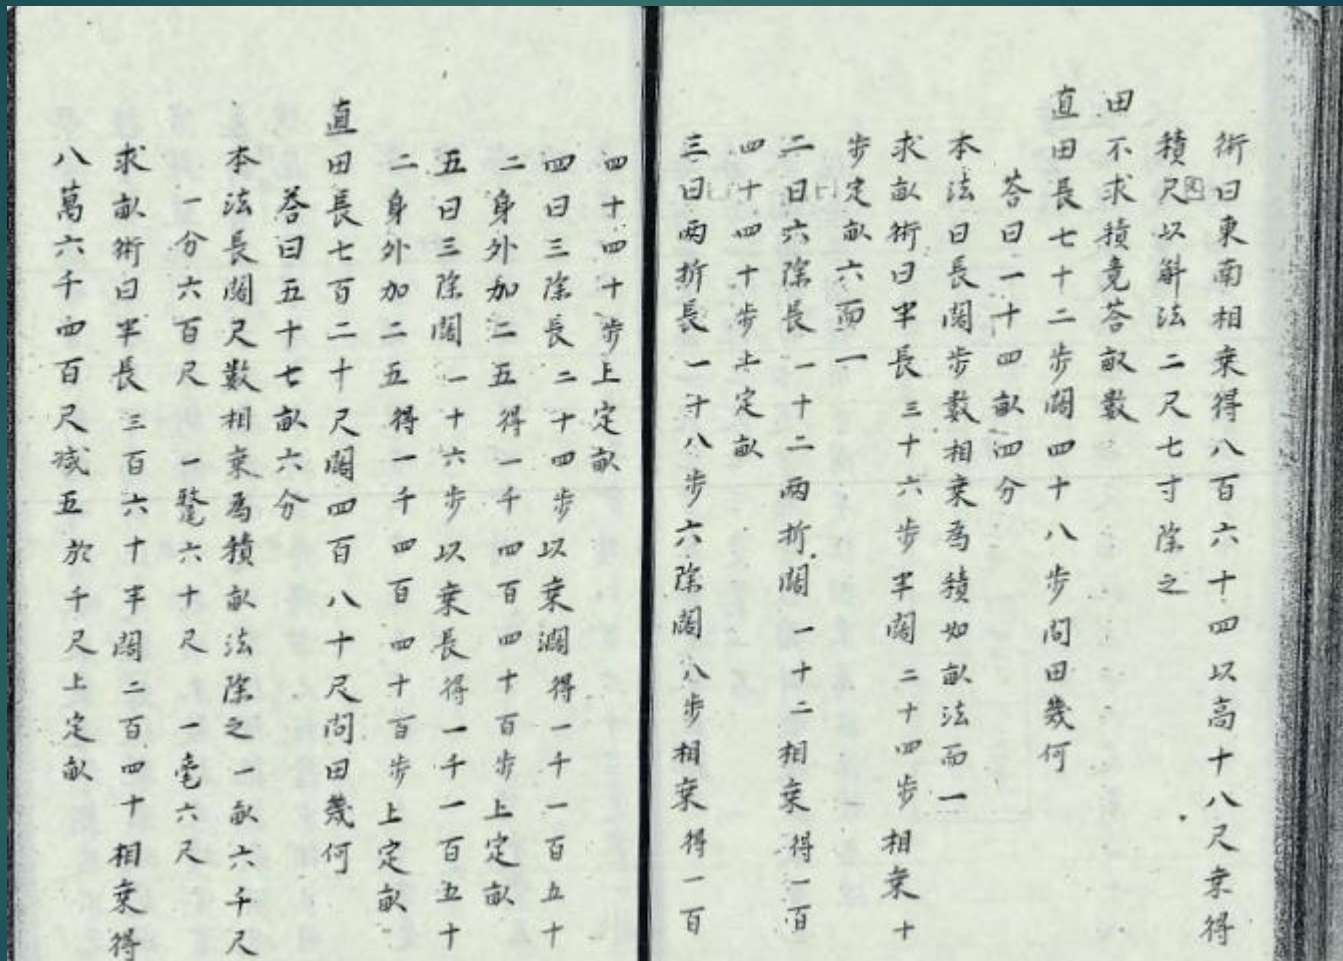 術曰東南相乗得八百六十四以高十八尺乗得
積尺以斛法二尺七寸除之
田不求積竟荅畝數
直田長七十二步闊四十八步問田幾何
荅曰一十四畝四分
本法曰長闊步數相乗為積如畝法而一
求畝術曰半長三十六步半闊二十四步相乗十
步定畝六而一
二曰六除長一十二兩折闊一十二相乗得一百
四十四十步上定畝
三曰兩折長一十八步六除闊八步相乗得一百
四十四十步上定畝
四曰三除長二十四步以乗濶得一千一百五十
二身外加二五得一千四百四十百步上定畝
五曰三除闊一十六步以乗長得一千一百五十
二身外加二五得一千四百四十百步上定畝
直田長七百二十尺闊四百八十尺問田幾何
荅曰五十七畝六分
本法長闊尺數相乗為積畝法除之一畝六千尺
一分六百尺一氂六十尺一毫六尺
求畝術曰半長三百六十半闊二百四十相乗得
八萬六千四百尺減五於千尺上定畝